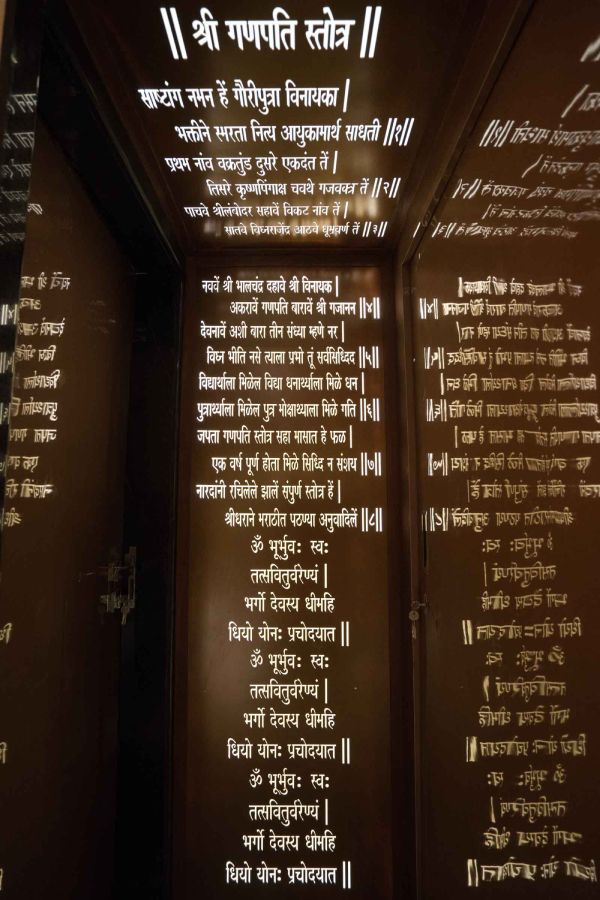 || श्री गणपति स्तोत्र ||
साष्टांग नमन हें गौरीपुत्रा विनायका |
भक्तीने स्मरता नित्य आयुकामार्थ साधती ||१||
प्रथम नांव वक्रतुंड दुसरे एकदंत तें |
तिसरे कृष्णपिंगाक्ष चवथे गजवक्त्र तें ||२||
पाचवे श्रीलंबोदर सहावें विकट नांव तें |
सातवे विघ्नराजेंद्र आठवे धूम्रवर्ण तें ||३||
नववें श्री भालचंद्र दहावे श्री विनायक |
अकरावें गणपति बारावें श्री गजानन ||४||
देवनावें अशी बारा तीन संध्या म्हणे नर |
विघ्न भीति नसे त्याला प्रभो तूं सर्वसिध्दिद ||५||
विद्यार्थ्याला मिळेल विद्या धनार्थ्याला मिळे धन |
पुत्रार्थ्याला मिळेल पुत्र मोक्षार्थ्याला मिळे गति ||६||
जपता गणपति स्तोत्र सहा मासात हे फळ |
एक वर्ष पूर्ण होता मिळे सिध्दि न संशय ||७||
नारदांनी रचिलेले झालें संपुर्ण स्तोत्र हें |
श्रीधराने मराठीत पठण्या अनुवादिलें ||८||
ॐ भूर्भुवः स्वः
तत्सवितुर्वरेण्यं |
भर्गो देवस्य धीमहि
धियो योनः प्रचोदयात ||
ॐ भूर्भुवः स्वः
तत्सवितुर्वरेण्यं |
भर्गो देवस्य धीमहि
धियो योनः प्रचोदयात ||
ॐ भूर्भुवः स्वः
तत्सवितुर्वरेण्यं |
भर्गो देवस्य धीमहि
धियो योनः प्रचोदयात ||